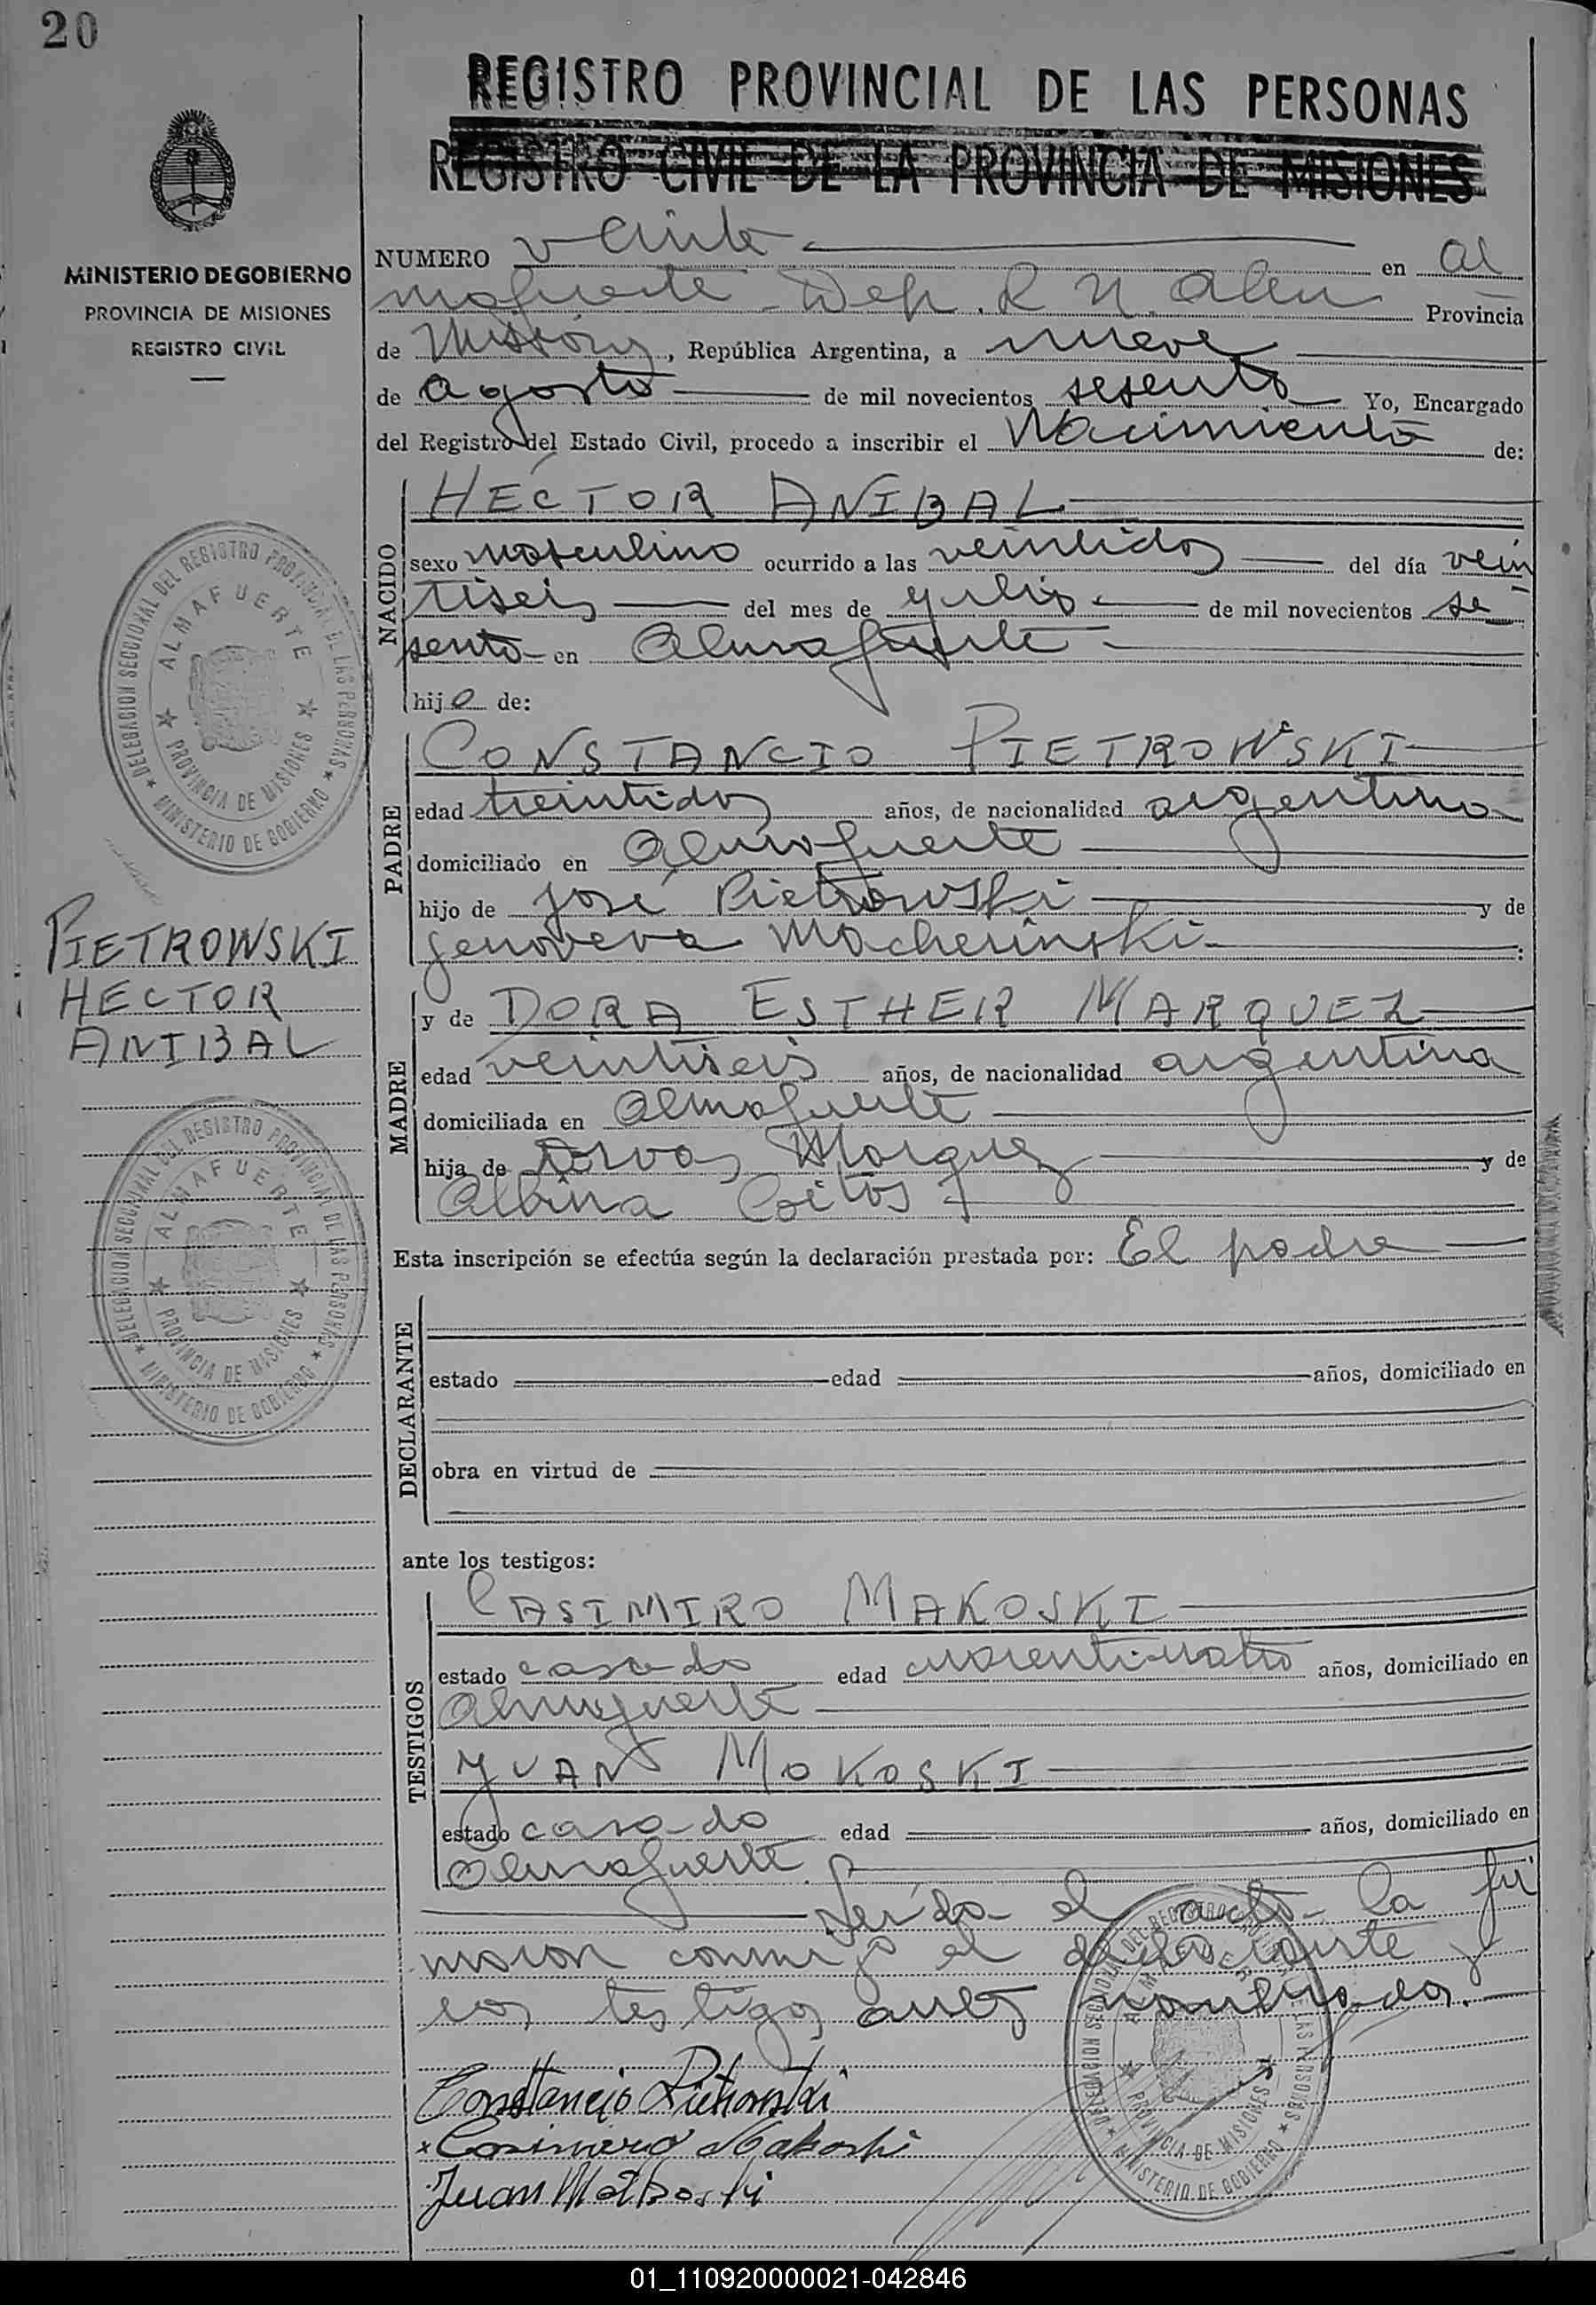 20
REGISTRO PROVINCIAL DE LAS PERSONAS
REGISTRO CIVIL DE LA PROVINCIA DE MISIONES
MINISTERIO DE GOBIERNO
PROVINCIA DE MISIONES
REGISTRO CIVIL
NUMERO veinte en Al
mafuerte Dep. L N Alem Provincia
de Misiones, República Argentina, a nueve
de agosto de mil novecientos sesenta Yo, Encargado
del Registro del Estado Civil, procedo a inscribir el Nacimiento de:
NACIDO
HÉCTOR ANIBAL
sexo masculino ocurrido a las veintidos del día vein
tiseis del mes de julio de mil novecientos se
senta en Almafuerte
hijo de:
PADRE
CONSTANCIO PIETROWSKI
edad treintidos años, de nacionalidad argentino
domiciliado en Almafuerte
hijo de José Pietrowski y de
Genoveva Macherinski :
PIETROWSKI
HECTOR
ANIBAL
MADRE
y de DORA ESTHER MARQUEZ
edad veintiseis años, de nacionalidad argentina
domiciliada en Almafuerte
hija de Marquez y de
Albina
Esta inscripción se efectúa según la declaración prestada por: El padre
DECLARANTE
estado edad años, domiciliado en
obra en virtud de
ante los testigos:
TESTIGOS
CASIMIRO MAKOSKI
estado casado edad cuarenticuatro años, domiciliado en
Almafuerte
JUAN MOKOSKI
estado casado edad años, domiciliado en
Almafuerte
Leída el acta la fir
maron conmigo el declarante y
los testigos antes nombrados.
Constancio Pietrowski
x Casimiero Makoski
Juan Makoski
DELEGACION SECCIONAL DEL REGISTRO PROVINCIAL DE LAS PERSONAS
ALMAFUERTE
PROVINCIA DE MISIONES
MINISTERIO DE GOBIERNO
DELEGACION SECCIONAL DEL REGISTRO PROVINCIAL DE LAS PERSONAS
ALMAFUERTE
PROVINCIA DE MISIONES
MINISTERIO DE GOBIERNO
PROVINCIA DE MISIONES
MINISTERIO DE GOBIERNO
01_110920000021-042846